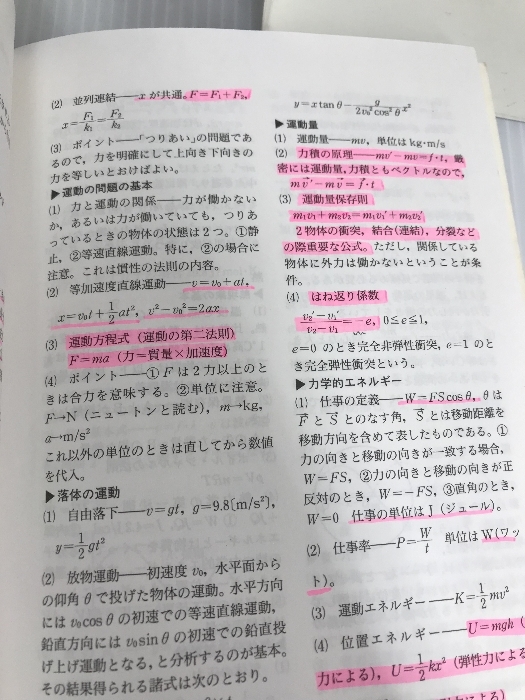 (2) 並列連結――xが共通。F=F₁+F₂,
x=F₁/k₁=F₂/k₂
(3) ポイント――「つりあい」の問題であ
るので, 力を明確にして上向き下向きの
力を等しいとおけばよい。
▶運動の問題の基本
(1) 力と運動の関係――力が働かない
か, あるいは力が働いていても, つりあ
っているときの物体の状態は2つ。①静
止, ②等速直線運動。特に, ②の場合に
注意。これは慣性の法則の内容。
(2) 等加速度直線運動――v=v₀+at,
x=v₀t+1/2at², v²-v₀²=2ax
(3) 運動方程式(運動の第二法則)
F=ma(力=質量×加速度)
(4) ポイント――① F は2力以上のと
きは合力を意味する。②単位に注意。
F→N(ニュートンと読む), m→kg,
a→m/s²
これ以外の単位のときは直してから数値
を代入。
▶落体の運動
(1) 自由落下――v=gt, g=9.8〔m/s²〕,
y=1/2gt²
(2) 放物運動――初速度 v₀, 水平面から
の仰角 θ で投げた物体の運動。水平方向
には v₀cosθ の初速での等速直線運動,
鉛直方向には v₀sinθ の初速での鉛直投
げ上げ運動となる, と分析するのが基本。
その結果得られる諸式は次のとおり。
y=xtanθ-g/2v₀²cos²θ x²
▶運動量
(1) 運動量――mv, 単位は kg·m/s
(2) 力積の原理――mv'-mv=f·t, 厳
密には運動量, 力積ともベクトルなので,
mv⃗'-mv⃗=f⃗·t
(3) 運動量保存則
m₁v₁+m₂v₂=m₁v₁'+m₂v₂'
2物体の衝突, 結合(連結), 分裂など
の際重要な公式。ただし, 関係している
物体に外力は働かないということが条
件。
(4) はね返り係数
v₂'-v₁'/v₂-v₁=-e, 0≦e≦1,
e=0 のとき完全非弾性衝突, e=1 のと
き完全弾性衝突という。
▶力学的エネルギー
(1) 仕事の定義――W=FScosθ, θ は
F⃗ と S⃗ とのなす角, S⃗ とは移動距離を
移動方向を含めて表したものである。①
力の向きと移動の向きが一致する場合,
W=FS, ②力の向きと移動の向きが正
反対のとき, W=-FS, ③直角のとき,
W=0 仕事の単位は J(ジュール)。
(2) 仕事率――P=W/t 単位は W(ワッ
ト)。
(3) 運動エネルギー――K=1/2mv²
(4) 位置エネルギー――U=mgh(
力による), U=1/2kx²(弾性力による